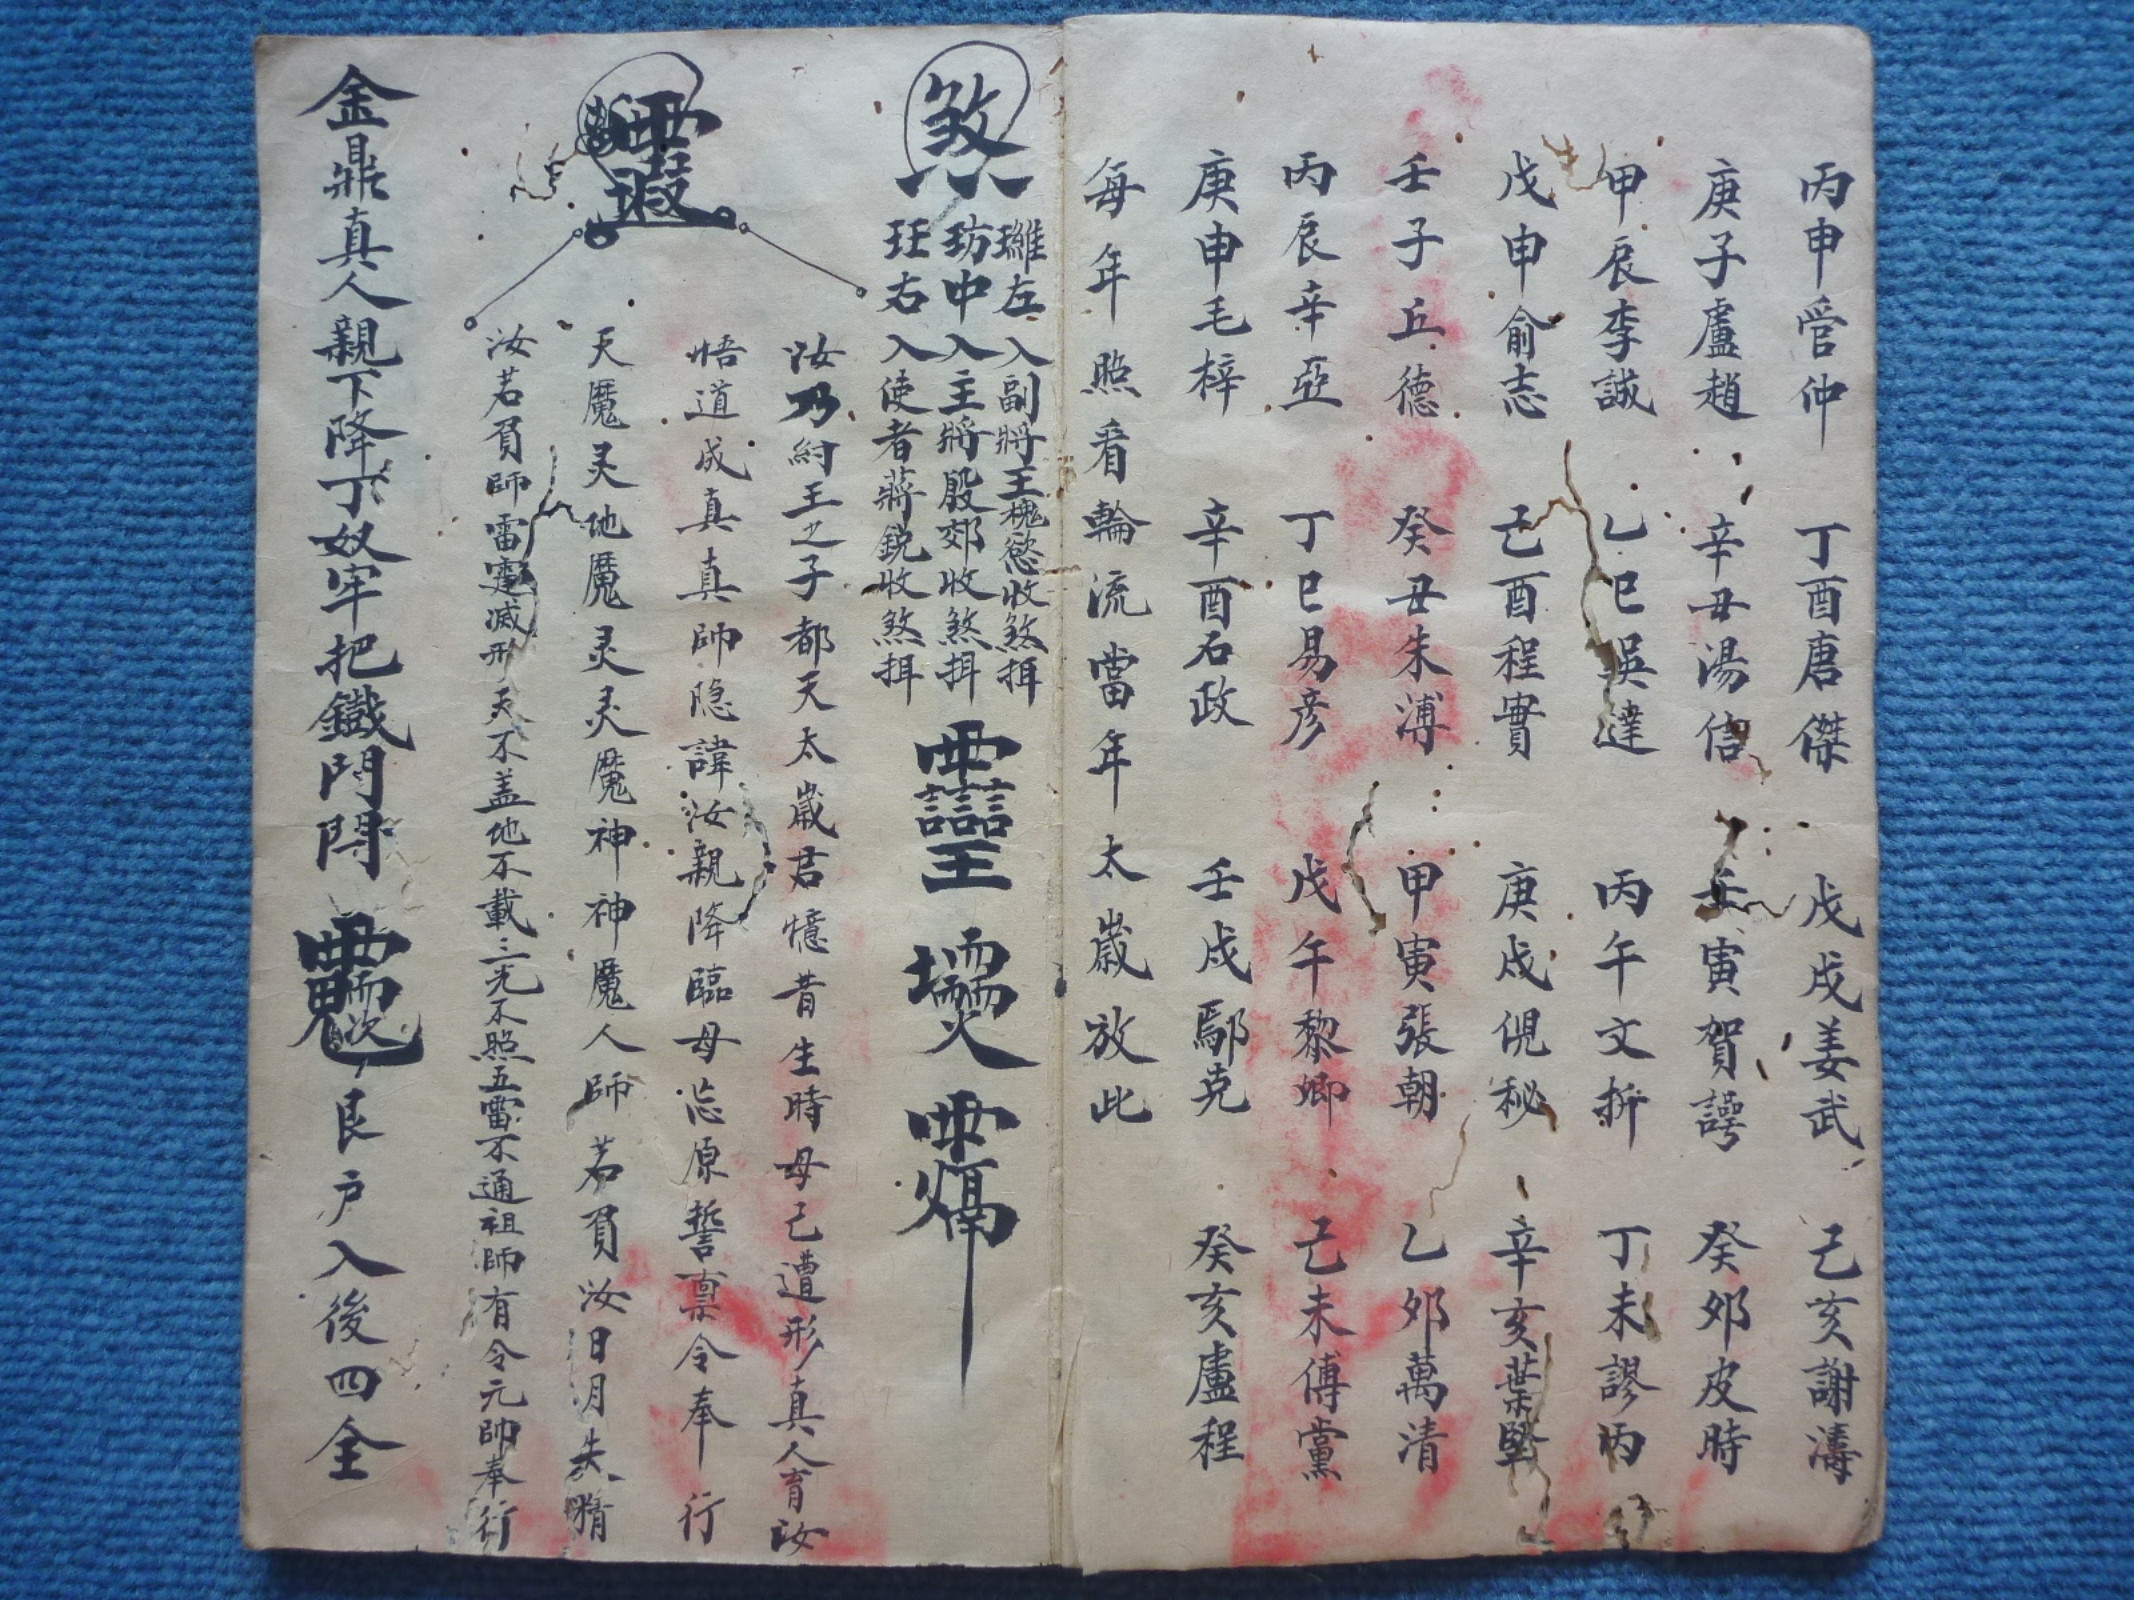 丙申管仲 丁酉唐傑 戊戌姜武 己亥謝濤
庚子盧趙 辛丑湯信 壬寅賀諤 癸卯皮時
甲辰李誠 乙巳吳達 丙午文折 丁未謬丙
戊申俞志 己酉程實 庚戌倪秘 辛亥葉堅
壬子丘德 癸丑朱溥 甲寅張朝 乙卯萬清
丙辰辛亞 丁巳易彥 戊午黎卿 己未傅黨
庚申毛梓 辛酉石政 壬戌鄔克 癸亥盧程
每年照看輪流當年太歲放此
煞
左入副將王槐慾收煞揖
中入主將殷郊收煞揖
右入使者蔣銳收煞揖
汝乃紂王之子都天太歲君憶昔生時母已遭形真人育汝
悟道成真真師隐諱汝親降臨母忘原誓禀令奉行
天魔灵地魔灵灵魔神神魔人師若負汝日月失精
汝若負師雷霆滅形天不盖地不載三光不照五雷不通祖師有令元帥奉行
金鼎真人親下降丁奴牢把鐵門閂 艮户入後四全